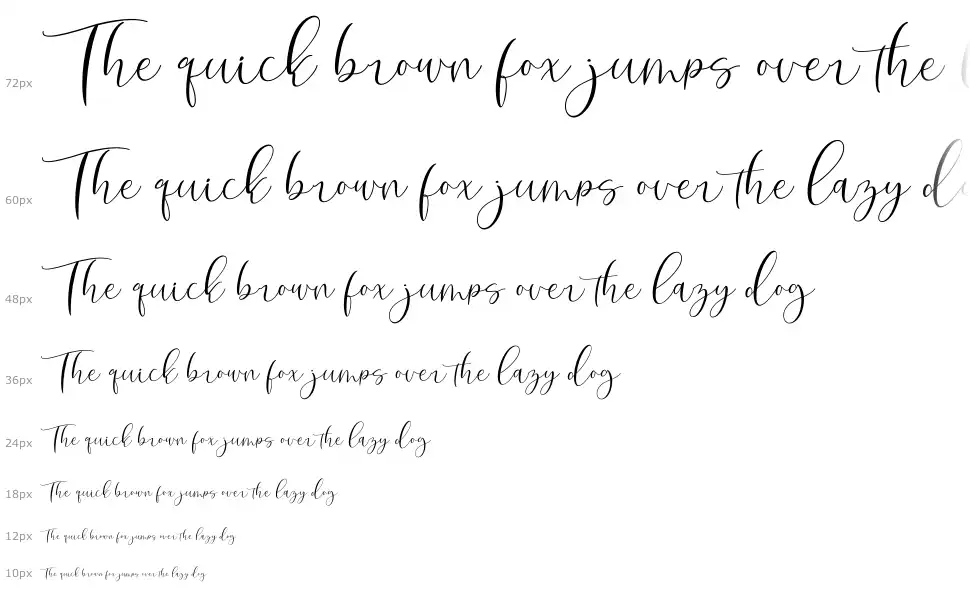 72px The quick brown fox jumps over the
60px The quick brown fox jumps over the lazy
48px The quick brown fox jumps over the lazy dog
36px The quick brown fox jumps over the lazy dog
24px The quick brown fox jumps over the lazy dog
18px The quick brown fox jumps over the lazy dog
12px The quick brown fox jumps over the lazy dog
10px The quick brown fox jumps over the lazy dog